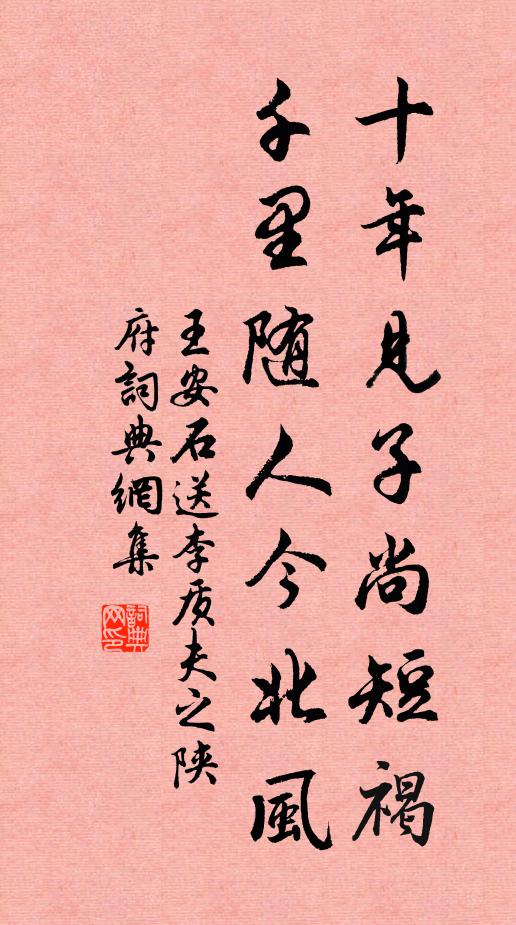 十年见子尚短褐
千里随人今北風
王安石送李质夫之陕
府詞典網集
詞典网印